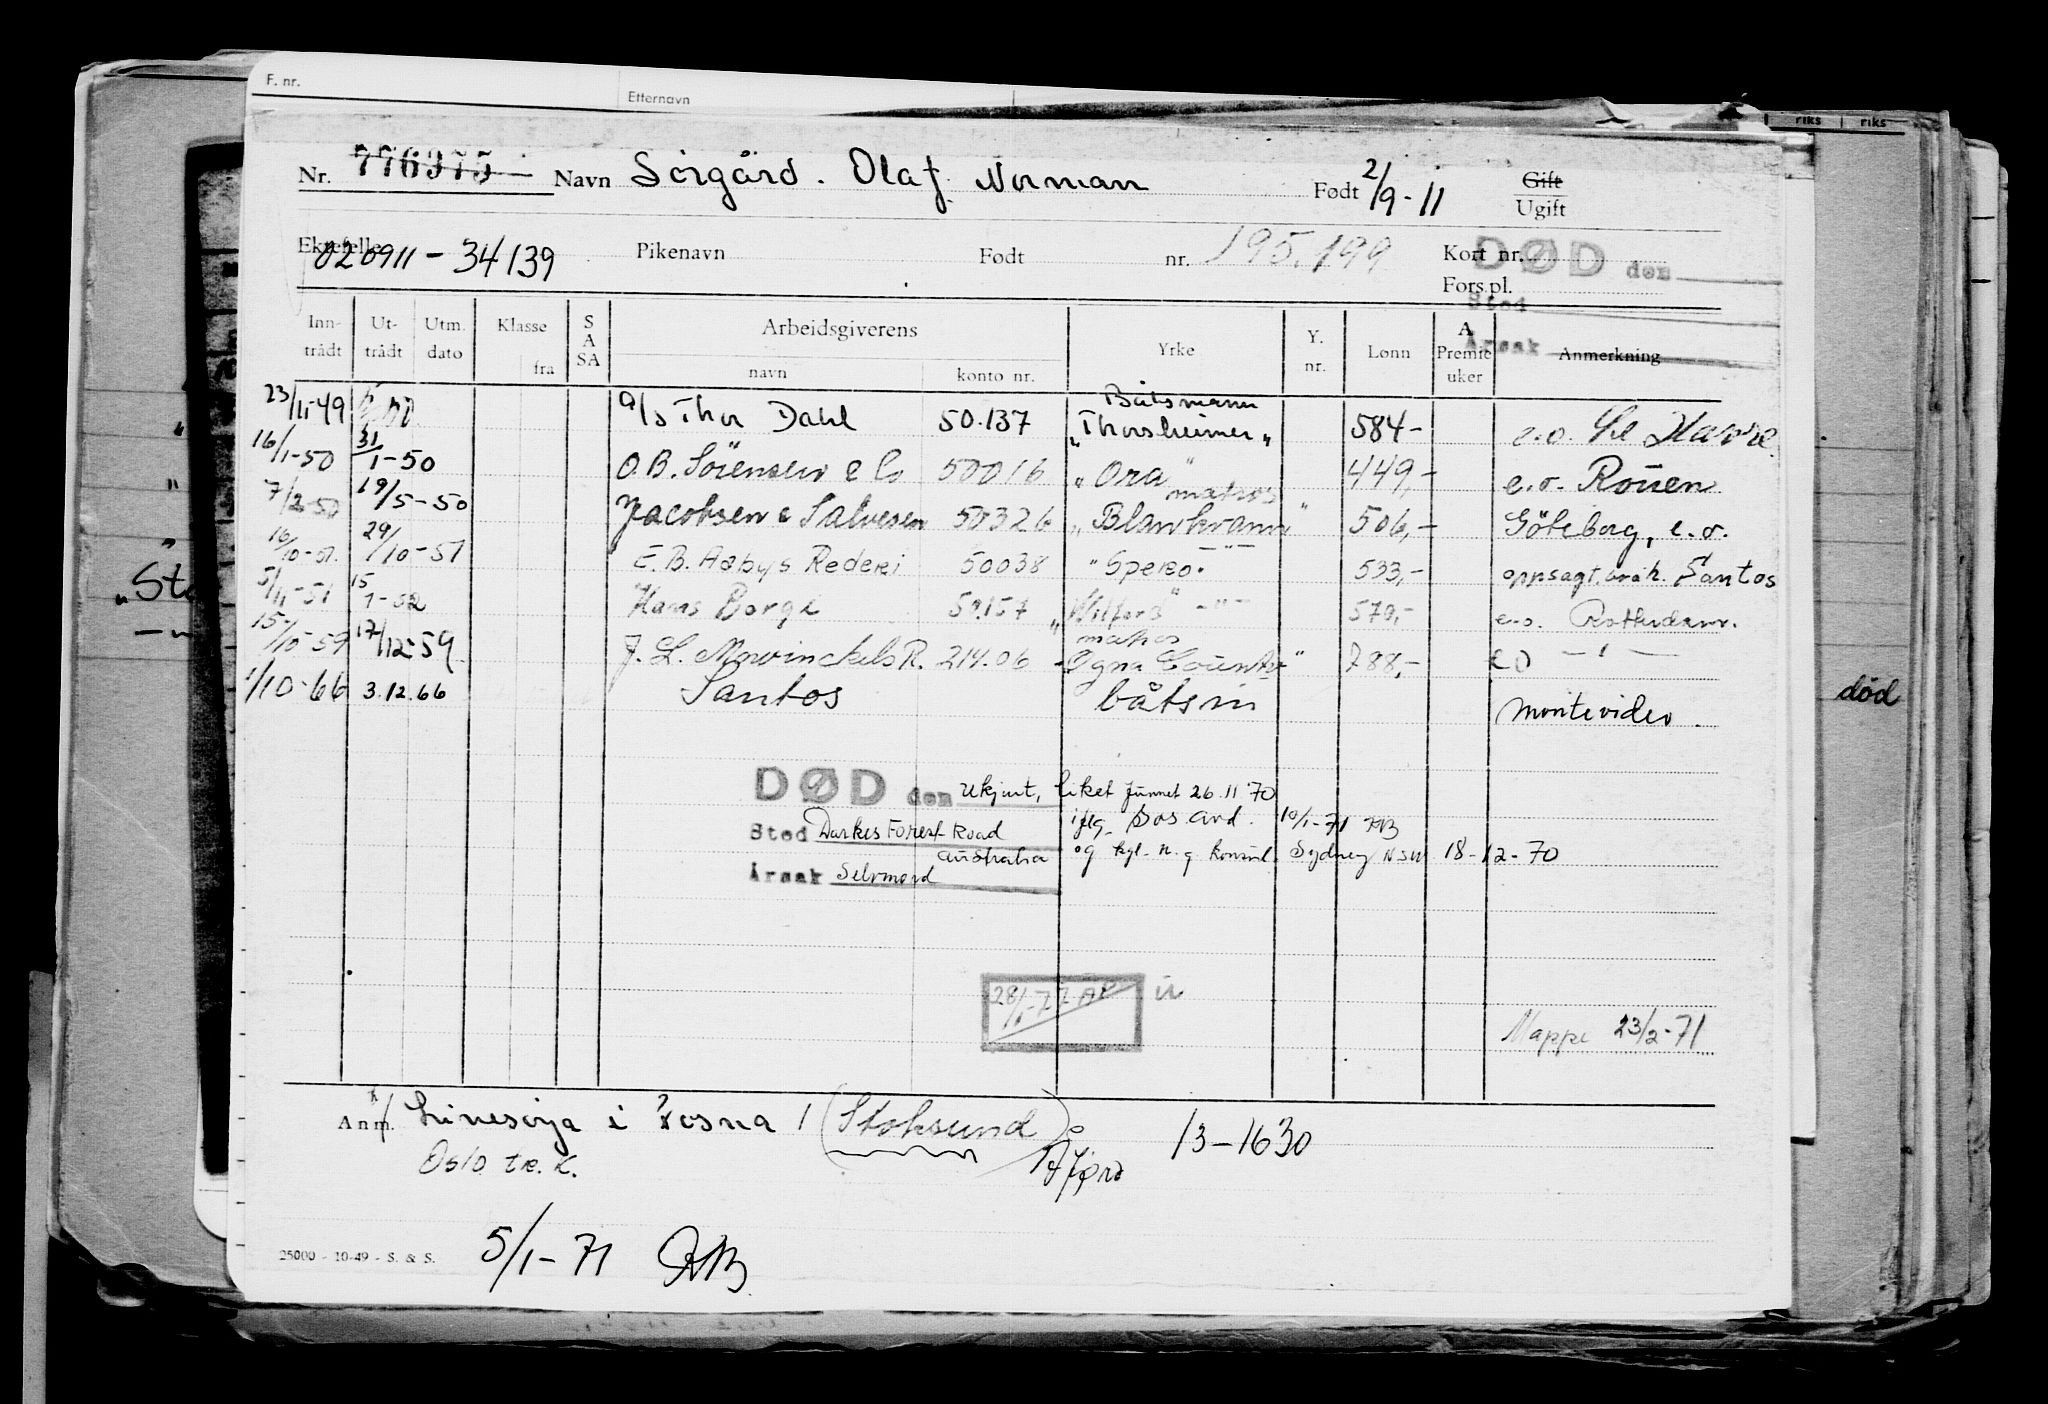 F. nr.
Etternavn
riks riks
Nr. 776375 Navn Sörgård. Olaf Norman Født 2/9-11 Gift
Ugift
Ektefelle 020911-34139 Pikenavn Født nr. 195.199 Kort nr.
Fors.pl.
DØD den
Sted
Årsak
Inn- trådt Ut- trådt Utm. dato Klasse fra S A SA Arbeidsgiverens navn konto nr. Yrke Y. nr. Lønn A Premie uker Anmerkning
Båtsmann
23/11-49 a/s Thor Dahl 50.137 "Thorsheimer" 584- e.o. Le Havre.
16/1-50 31/1-50 O.B. Sörensen & Co 50016 "Ora" 449,- e.o. Rouen
matros
7/2-50 19/5-50 Jacobsen & Salvesen 50326 "Blankvann" 506,- Göteborg, e.o.
16/10-51. 29/10-51 E.B. Aabys Rederi 50038 "Spero" -"- 533,- oppsagt Santos
5/11-51 15/1-52 Hans Borge 50157 -"- 579,- e.o. Rotterdam.
matros
15/10-59 17/12-59 J.L. Mowinckels R. 214.06 "Ogna 788,- eo -"-
1/10-66 3.12.66 Santos båtsm Montevideo.
død
DØD den Ukjent, liket funnet 26.11 70
Sted Darkes Forest Road iflg. Sos avd. 10/1-71 RB
Australia og kgl. n. g. konsul. Sydney NSW 18-12-70
Årsak Selvmord
28/
Mappe 23/2-71
Anm. Linesøya i Fosna / (Stoksund) 13-1630
Oslo tr.k. Åfjord
25000 - 10-49 - S. & S. 5/1-71 RB